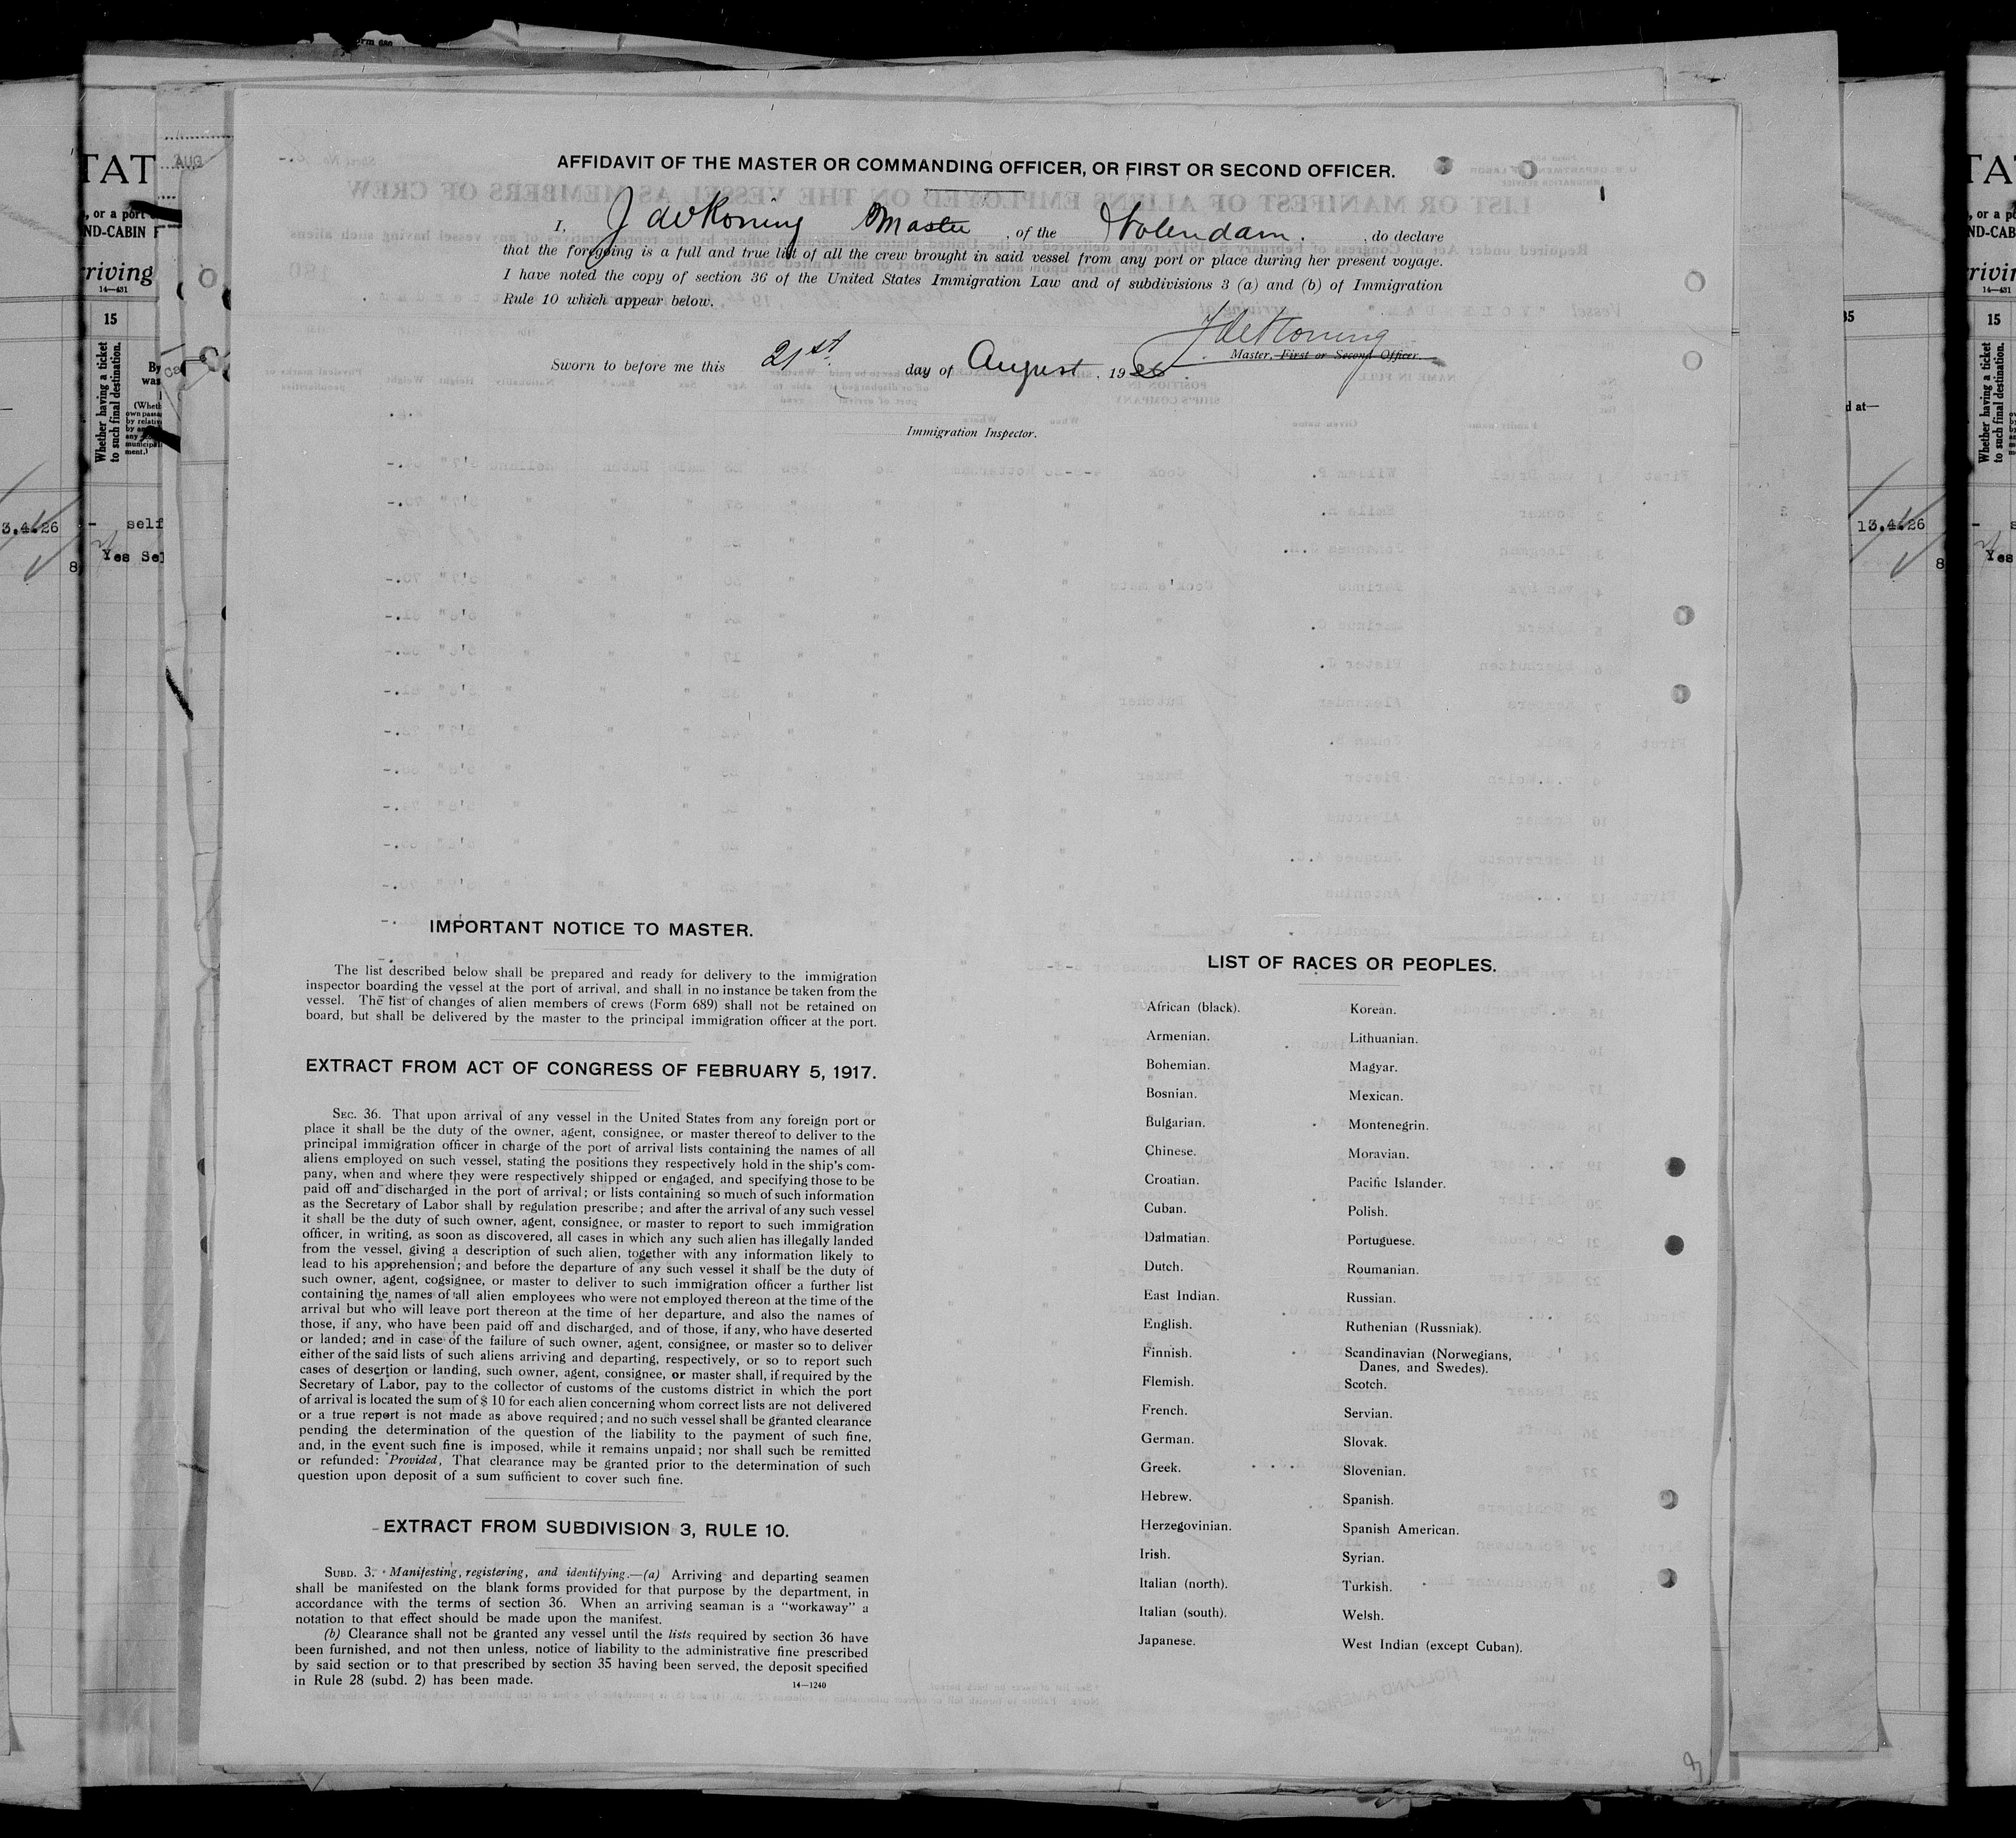 AFFIDAVIT OF THE MASTER OR COMMANDING OFFICER, OR FIRST OR SECOND OFFICER.
I, J de Koning Master, of the Volendam., do declare
that the foregoing is a full and true list of all the crew brought in said vessel from any port or place during her present voyage.
I have noted the copy of section 36 of the United States Immigration Law and of subdivisions 3 (a) and (b) of Immigration
Rule 10 which appear below.
J de Koning
Master, First or Second Officer.
Sworn to before me this 21st day of August, 1926
Immigration Inspector.
IMPORTANT NOTICE TO MASTER.
The list described below shall be prepared and ready for delivery to the immigration
inspector boarding the vessel at the port of arrival, and shall in no instance be taken from the
vessel. The list of changes of alien members of crews (Form 689) shall not be retained on
board, but shall be delivered by the master to the principal immigration officer at the port.
EXTRACT FROM ACT OF CONGRESS OF FEBRUARY 5, 1917.
SEC. 36. That upon arrival of any vessel in the United States from any foreign port or
place it shall be the duty of the owner, agent, consignee, or master thereof to deliver to the
principal immigration officer in charge of the port of arrival lists containing the names of all
aliens employed on such vessel, stating the positions they respectively hold in the ship's com-
pany, when and where they were respectively shipped or engaged, and specifying those to be
paid off and discharged in the port of arrival; or lists containing so much of such information
as the Secretary of Labor shall by regulation prescribe; and after the arrival of any such vessel
it shall be the duty of such owner, agent, consignee, or master to report to such immigration
officer, in writing, as soon as discovered, all cases in which any such alien has illegally landed
from the vessel, giving a description of such alien, together with any information likely to
lead to his apprehension; and before the departure of any such vessel it shall be the duty of
such owner, agent, cogsignee, or master to deliver to such immigration officer a further list
containing the names of all alien employees who were not employed thereon at the time of the
arrival but who will leave port thereon at the time of her departure, and also the names of
those, if any, who have been paid off and discharged, and of those, if any, who have deserted
or landed; and in case of the failure of such owner, agent, consignee, or master so to deliver
either of the said lists of such aliens arriving and departing, respectively, or so to report such
cases of desertion or landing, such owner, agent, consignee, or master shall, if required by the
Secretary of Labor, pay to the collector of customs of the customs district in which the port
of arrival is located the sum of $ 10 for each alien concerning whom correct lists are not delivered
or a true report is not made as above required; and no such vessel shall be granted clearance
pending the determination of the question of the liability to the payment of such fine,
and, in the event such fine is imposed, while it remains unpaid; nor shall such be remitted
or refunded: Provided, That clearance may be granted prior to the determination of such
question upon deposit of a sum sufficient to cover such fine.
EXTRACT FROM SUBDIVISION 3, RULE 10.
SUBD. 3. Manifesting, registering, and identifying.—(a) Arriving and departing seamen
shall be manifested on the blank forms provided for that purpose by the department, in
accordance with the terms of section 36. When an arriving seaman is a "workaway" a
notation to that effect should be made upon the manifest.
(b) Clearance shall not be granted any vessel until the lists required by section 36 have
been furnished, and not then unless, notice of liability to the administrative fine prescribed
by said section or to that prescribed by section 35 having been served, the deposit specified
in Rule 28 (subd. 2) has been made.
14—1240
LIST OF RACES OR PEOPLES.
African (black).
Armenian.
Bohemian.
Bosnian.
Bulgarian.
Chinese.
Croatian.
Cuban.
Dalmatian.
Dutch.
East Indian.
English.
Finnish.
Flemish.
French.
German.
Greek.
Hebrew.
Herzegovinian.
Irish.
Italian (north).
Italian (south).
Japanese.
Korean.
Lithuanian.
Magyar.
Mexican.
Montenegrin.
Moravian.
Pacific Islander.
Polish.
Portuguese.
Roumanian.
Russian.
Ruthenian (Russniak).
Scandinavian (Norwegians,
Danes, and Swedes).
Scotch.
Servian.
Slovak.
Slovenian.
Spanish.
Spanish American.
Syrian.
Turkish.
Welsh.
West Indian (except Cuban).